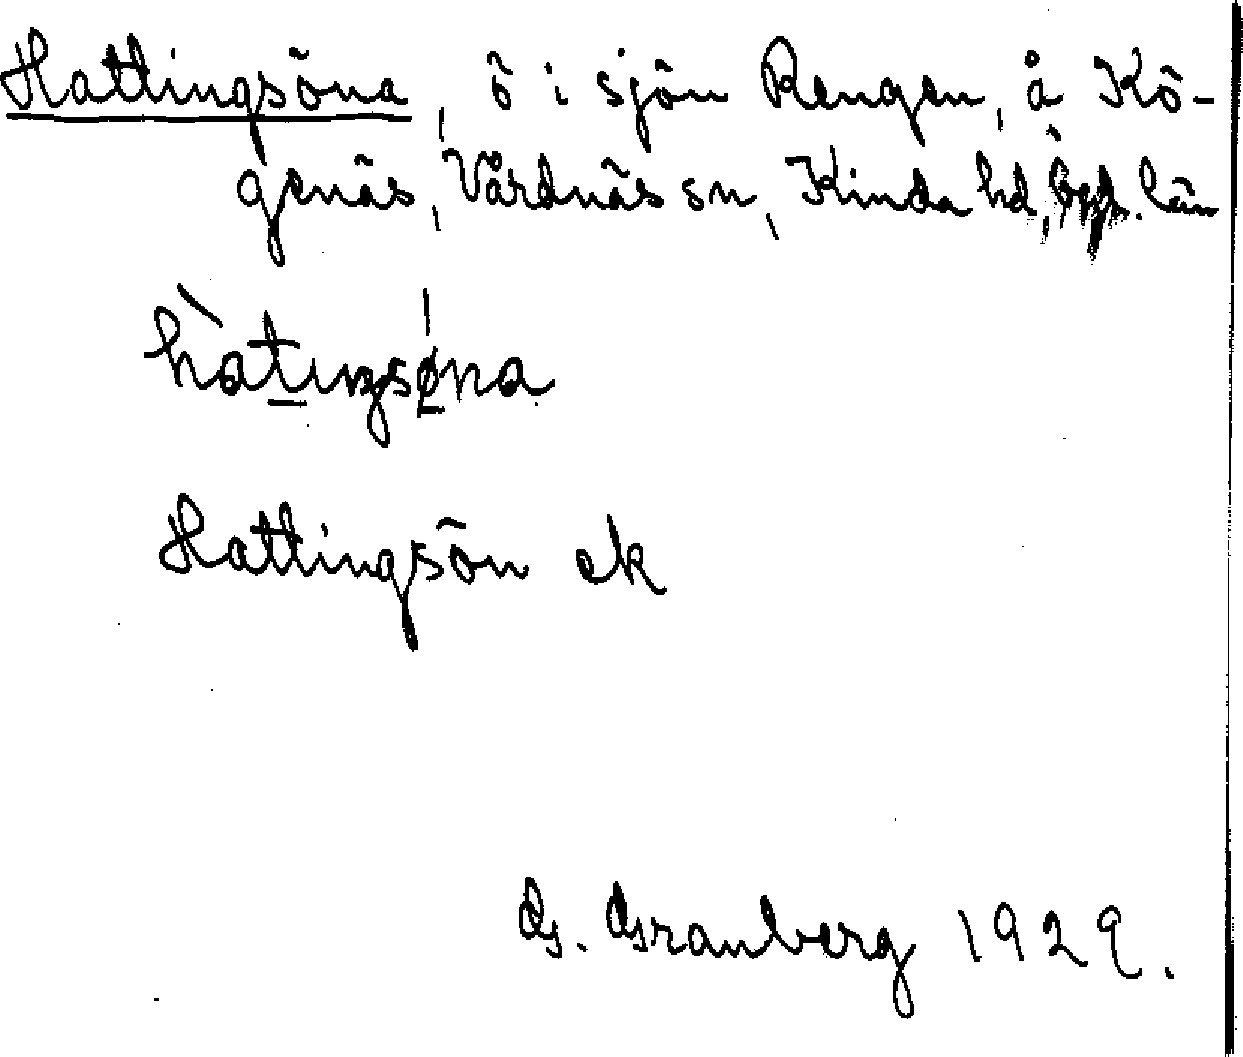 Hattingsöna, ö i sjön Rengen, å Kö-
genäs, Vårdnäs sn, Kinda hd, Ögl. län
hàtıŋsø̀na
Hattingsön ek
G. Granberg 1929.